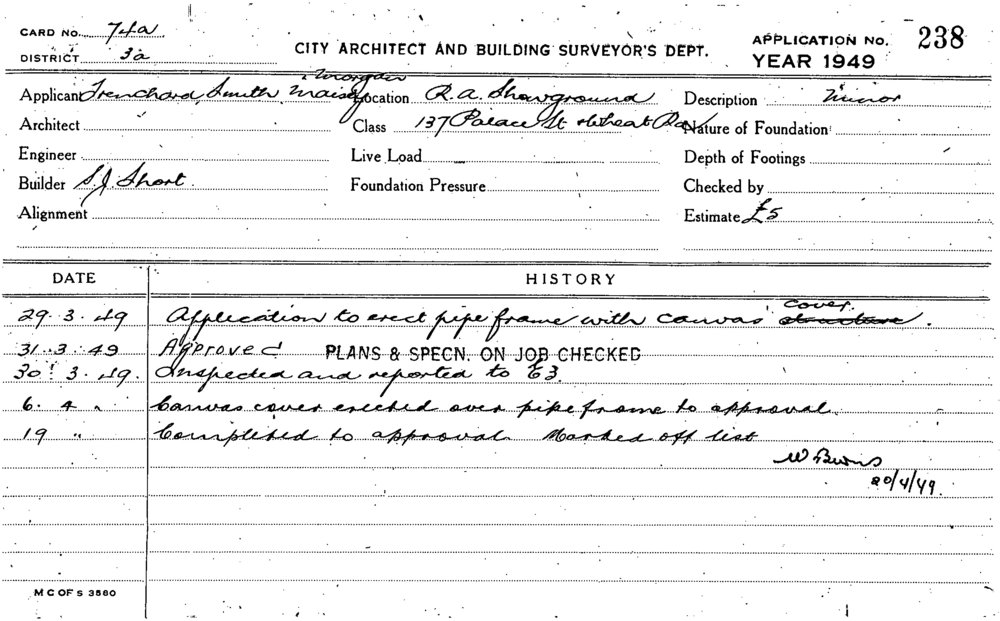 CARD No. 74a
DISTRICT 3a
CITY ARCHITECT AND BUILDING SURVEYOR'S DEPT.
APPLICATION No. 238
YEAR 1949
Morgan
Applicant Trenchard, Smith, Maisey Location R.A. Showground Description Minor
Architect Class 137 Palace St Wheat Rd Nature of Foundation
Engineer Live Load Depth of Footings
Builder S.J. Short Foundation Pressure Checked by
Alignment Estimate £5
DATE HISTORY
cover
29.3.49 Application to erect pipe frame with canvas structure.
31.3.49 Approved PLANS & SPECN. ON JOB CHECKED
30.3.49. Inspected and reported to E3.
6. 4 " Canvas cover erected over pipe frame to approval.
19 " Completed to approval. Marked off list
W Burns
20/4/49.
M C OF S 3580